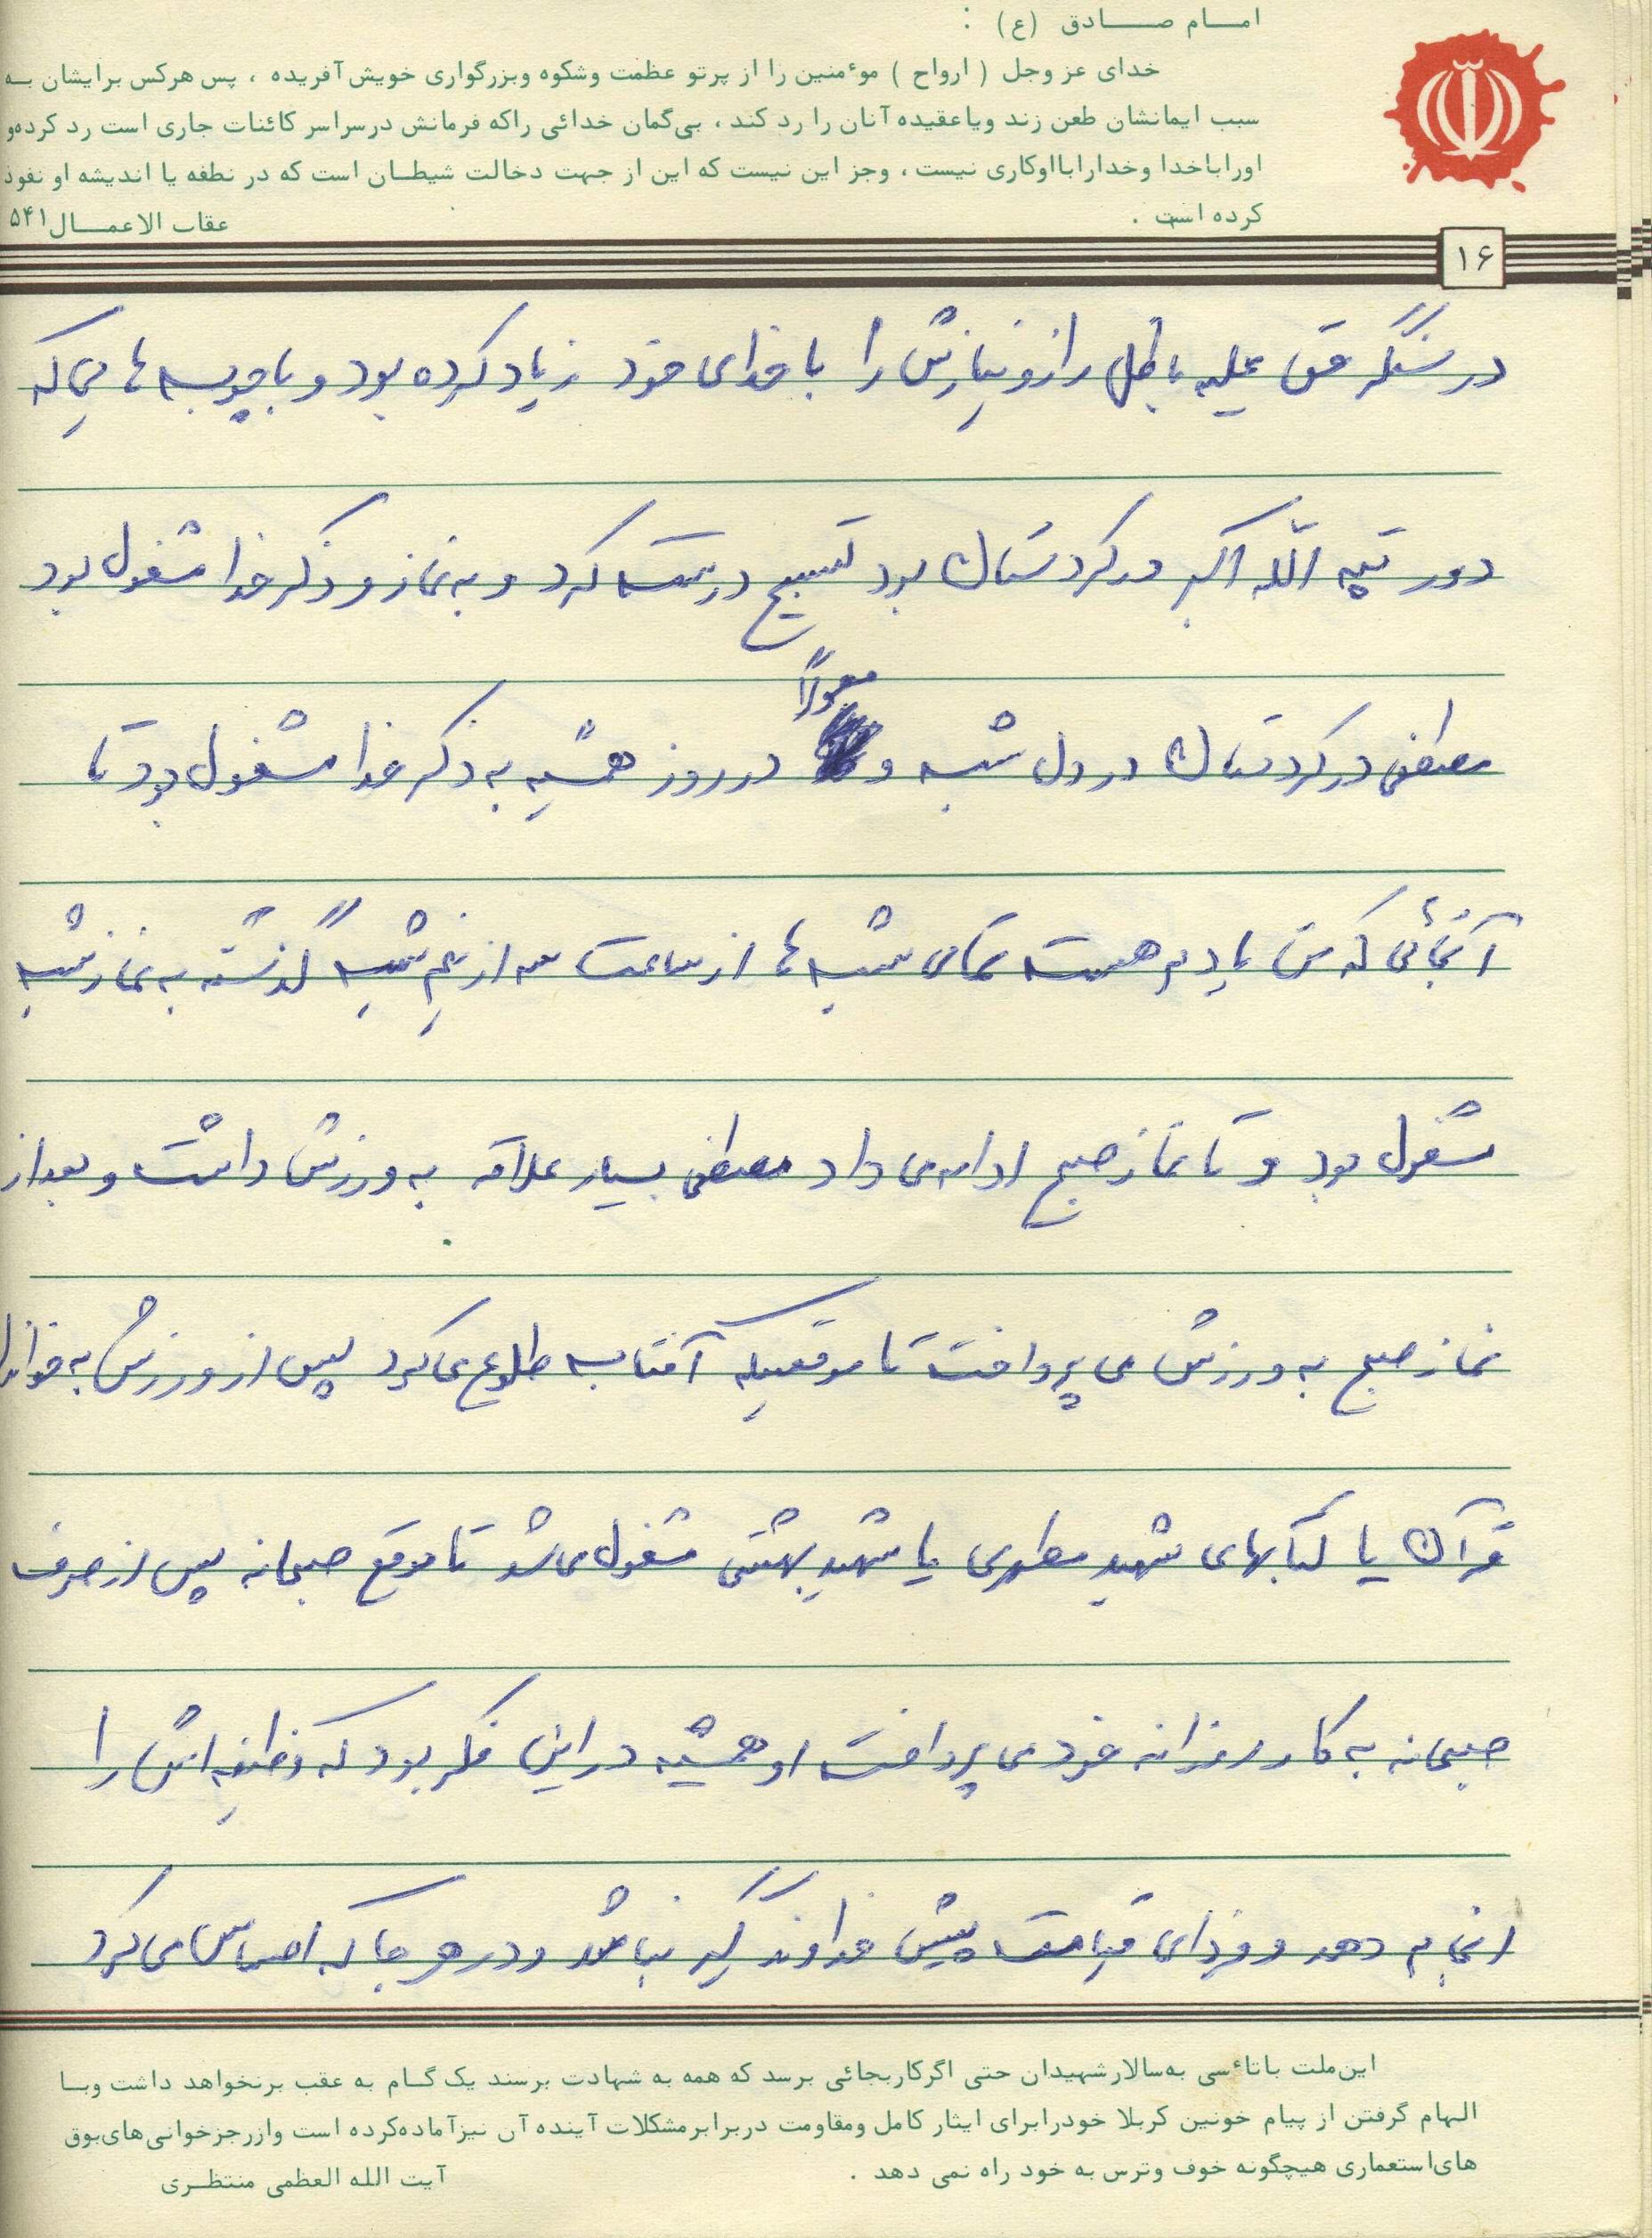 امـــام صـــادق (ع) :
خدای عز وجل ( ارواح ) موٴمنین را از پرتو عظمت وشکوه وبزرگواری خویش آفریده ، پس هرکس برایشان بـه
سبب ایمانشان طعن زند ویاعقیده آنان را رد کند ، بی‌گمان خدائی راکه فرمانش درسراسر کائنات جاری است رد کرده‌و
اوراباخدا وخدارابااوکاری نیست ، وجز این نیست که این از جهت دخالت شیطـان است که در نطفه یا اندیشه او نفوذ
کرده است .
عقاب الاعمـــال ۵۴۱
۱۶
در سنگر حق علیه باطل راز و نیازش را با خدای خود زیاد کرده بود و با چوب هایی که
دور تپه الله اکبر در کردستان بود تسبیح درست کرد و به نماز و ذکر خدا مشغول بود
معمولاً
مصطفی در کردستان در دل شب و در روز همیشه به ذکر خدا مشغول بود تا
آنجائی که من یادم هست تمامی شب ها از ساعت سه از نیم شب گذشته به نماز شب
مشغول بود و تا نماز صبح ادامه می داد مصطفی بسیار علاقه به ورزش داشت و بعد از
نماز صبح به ورزش می پرداخت تا موقعیکه آفتاب طلوع می کرد پس از ورزش به خواندن
قرآن یا کتابهای شهید مطهری یا شهید بهشتی مشغول می شد تا موقع صبحانه پس از صرف
صبحانه به کار روزانه خود می پرداخت او همیشه در این فکر بود که وظیفه اش را
انجام دهد و فردای قیامت پیش خداوند گیر نباشد و در هر جا که احساس می کرد
این‌ملت باتاٴسی به‌سالارشهیدان حتی اگرکاربجائی برسد که همه به شهادت برسند یک گـام به عقب برنخواهد داشت وبـا
الهام گرفتن از پیام خونین کربلا خودرابرای ایثار کامل ومقاومت دربرابرمشکلات آینده آن نیزآماده‌کرده است وازرجزخوانی‌های‌بوق
های‌استعماری هیچگونه خوف وترس به خود راه نمی دهد .
آیت الله العظمی منتظـری